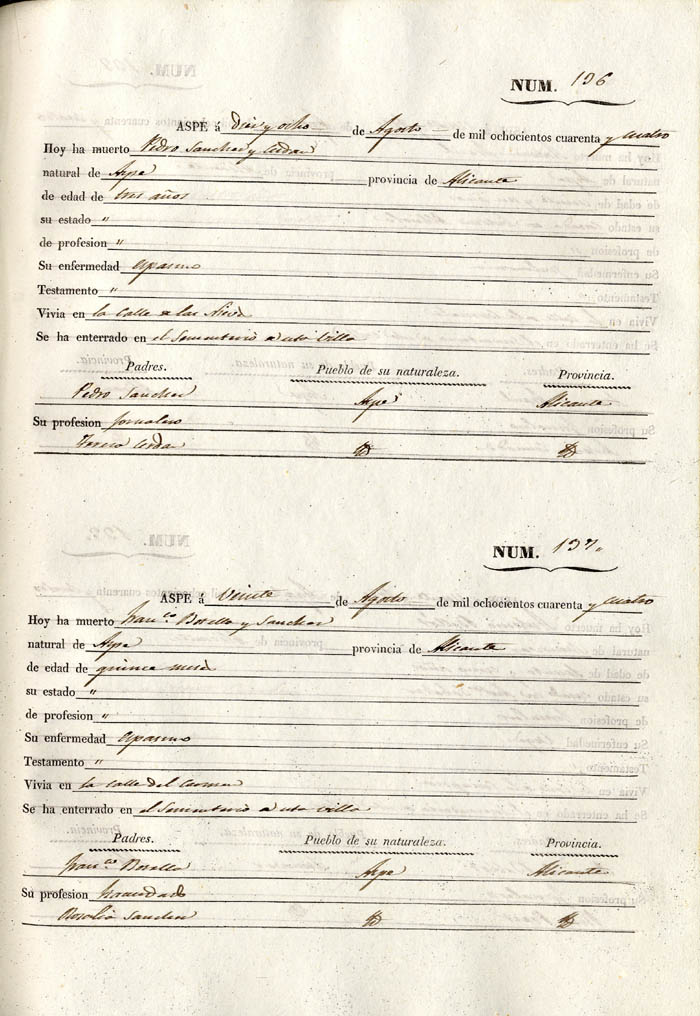 NUM. 136
ASPE á Diez y ocho de Agosto de mil ochocientos cuarenta y cuatro
Hoy ha muerto Pedro Sanchez y Cerdan
natural de Aspe provincia de Alicante
de edad de tres años
su estado "
de profesion "
Su enfermedad
Testamento "
Vivia en la Calle de las
Se ha enterrado en el Sementerio de esta Villa
Padres. Pueblo de su naturaleza. Provincia.
Pedro Sanchez Aspe Alicante
Su profesion Jornalero
Teresa Cerdan
NUM. 137.
ASPE á Veinte de Agosto de mil ochocientos cuarenta y cuatro
Hoy ha muerto Fran.co Botella y Sanchez
natural de Aspe provincia de Alicante
de edad de quince meses
su estado "
de profesion "
Su enfermedad
Testamento "
Vivia en la Calle del Carmen
Se ha enterrado en el Sementerio de esta villa
Padres. Pueblo de su naturaleza. Provincia.
Fran.co Botella Aspe Alicante
Su profesion Hacendado
Rosalia Sanchez